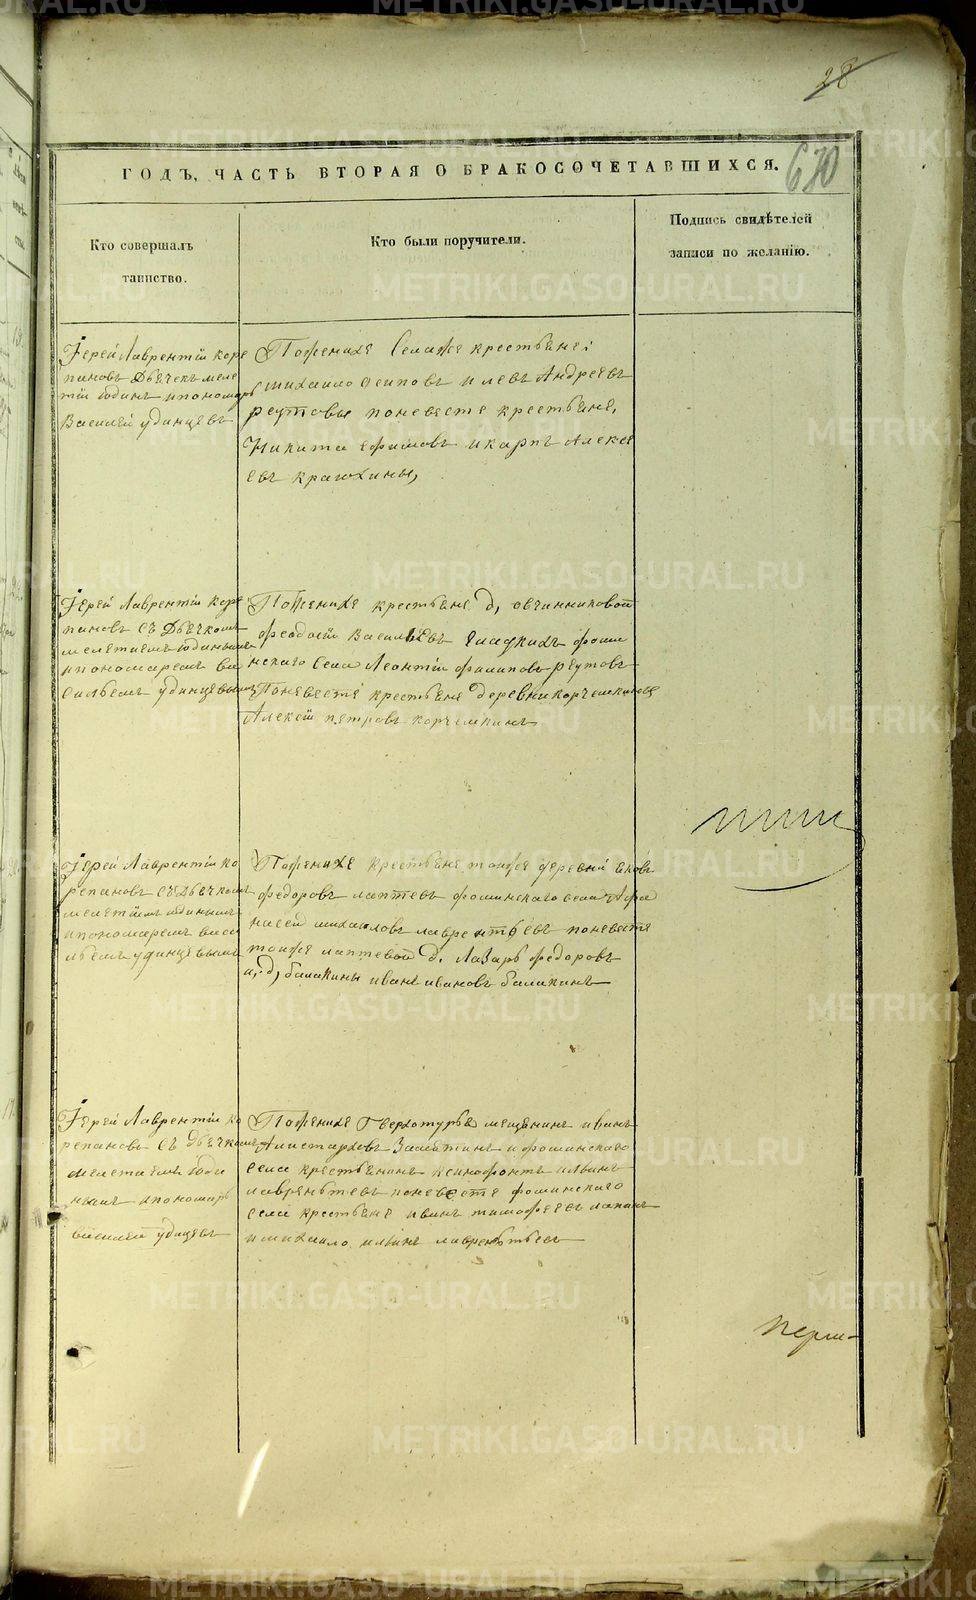 28
ГОДЪ, ЧАСТЬ ВТОРАЯ О БРАКОСОЧЕТАВШИХСЯ.
670
Кто совершалъ
таинство.
Кто были поручители.
Подпись свидѣтелей
записи по желанію.
Іерей Лаврентій Коре
пановъ Дьячекъ меле
тій юдинъ ипономарь
Василей удинцевъ
Поженихе Селаже крестьяне:
михаило осиповъ илевъ Андреевъ
реутовы поневесте крестьяне,
Никита ефимовъ икарпъ Алексе
евъ
Іерей Лаврентій Коре
пановъ СЪ Дьячкомъ
мелетиемъ юдинымъ
ипономаремъ ва
сильемъ удинцевымъ
Поженихе крестьяне д, овчинниковой
феодосій Васильевъ гладкихъ фоми
нскаго Села Леонтій филиповъ реутовъ
Поневесте крестьяне деревни корчемкиной
Алексій петровъ корчемкинъ
Іерей Лаврентій ко
репановъ СЪ Дьячкомъ
мелетіемъ юдинымъ
ипономаремъ васи
льемъ удинцевымъ
Поженихе крестьяне тояже деревни яковъ
федоровъ лаптевъ фоминскаго села Афа
насей михаиловъ лаврентьевъ поневесте
тояже лаптевой д, Лазарь федоровъ
и, д, балакины иванъ ивановъ балакинъ
Іерей Лаврентій ко
репановъ СЪ Дьячкомъ
мелетиемъ юди
нымъ ипономарь
василей удинцевъ
Поженихе Г верхотурья мещанинъ иванъ
Аристарховъ Замяткинъ ифоминскаго
села крестьянинъ ксинофонтъ ильинъ
лаврентьевъ поневесте фоминскаго
села крестьяне иванъ тимофеевъ лапинъ
имихаило ильинъ лаврентьевъ
METRIKI.GASO-URAL.RU